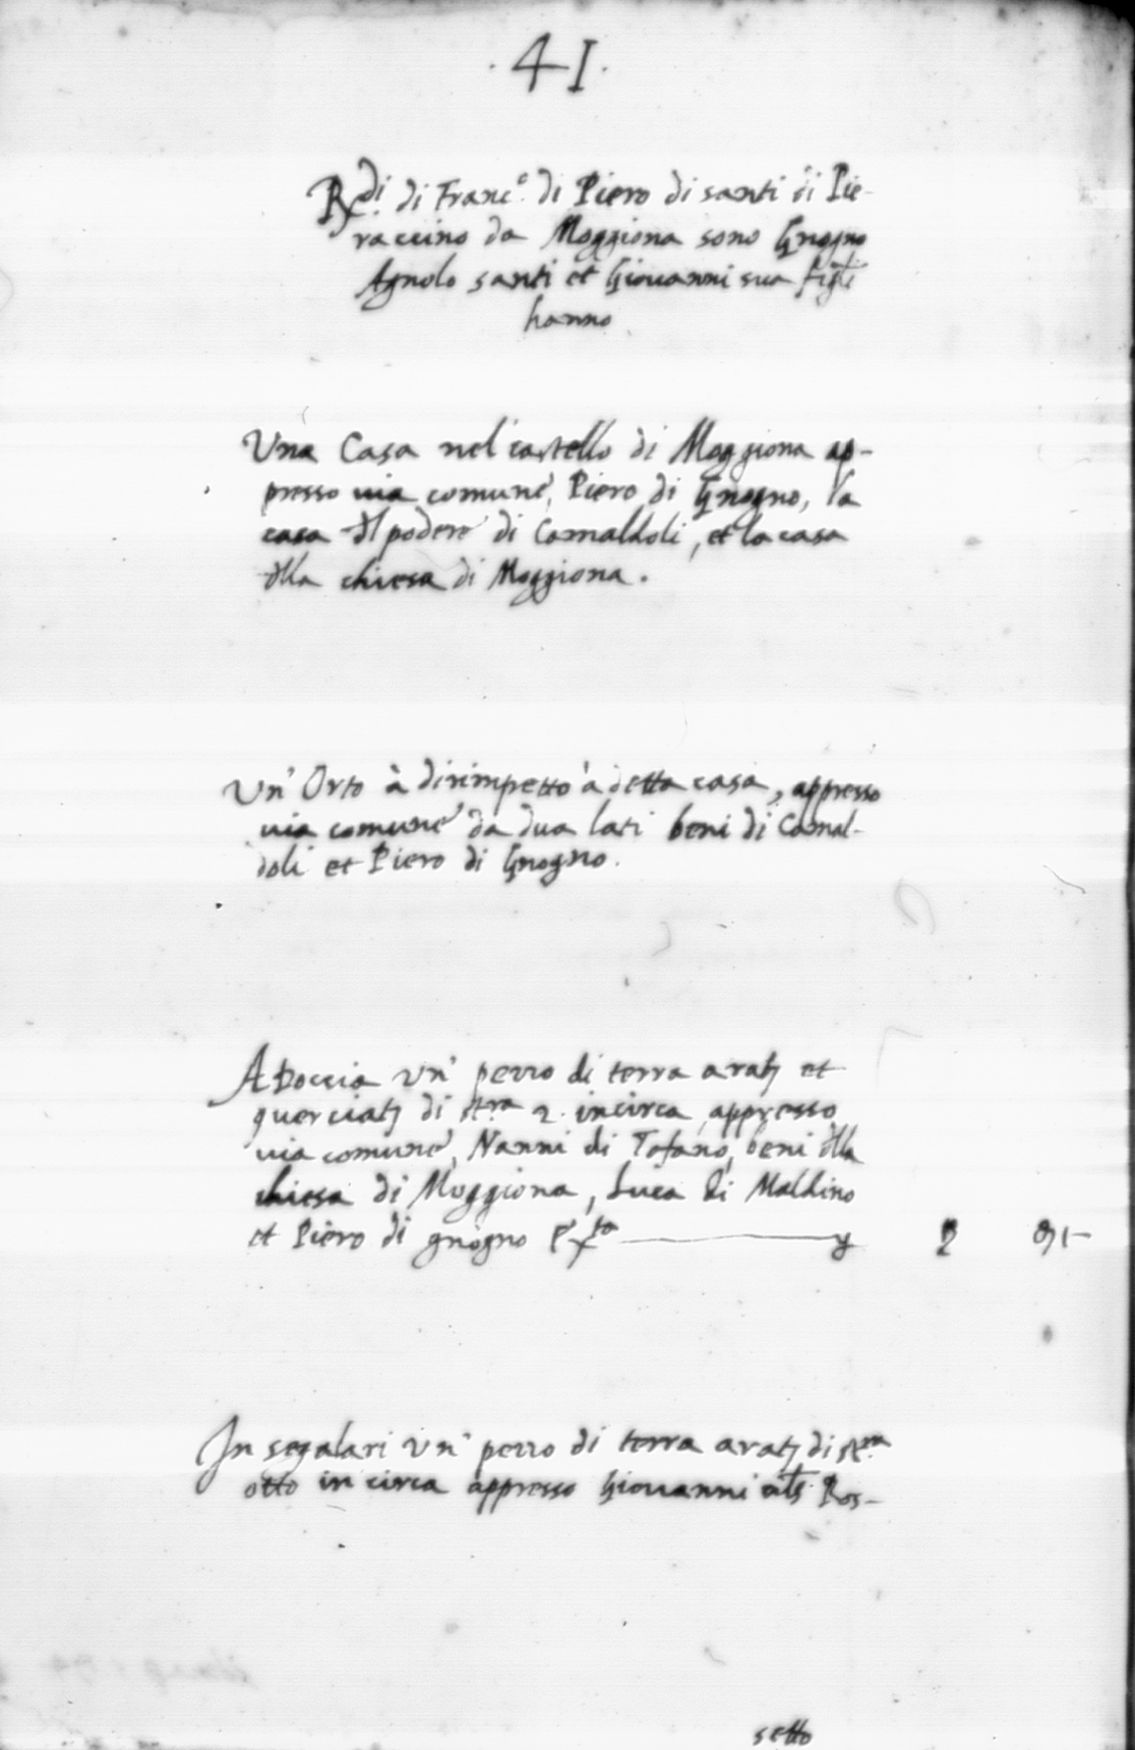 ·41·
Rdi. di Franco. di Piero di santi di Pie-
raccino da Moggiona sono Gnogno
Agnolo santi et Giouanni sua figli
hanno
Una Casa nel castello di Moggiona ap-
presso uia comune, Piero di Gnogno, la
casa dl podere di Camaldoli, et la casa
dlla chiesa di Moggiona.
Un' Orto à dirimpetto à detta casa, appresso
uia comune da dua lati beni di Camal-
doli et Piero di Gnogno.
A Doccia un' pezzo di terra aratj et
querciatj di stra 2. incirca appresso
uia comune, Nanni di Tofano, beni dlla
chiesa di Moggiona, Luca di Maldino
et Piero di gnogno
In segalari un' pezzo di terra aratj di stra
otto in circa appresso Giouanni als Ros-
setto